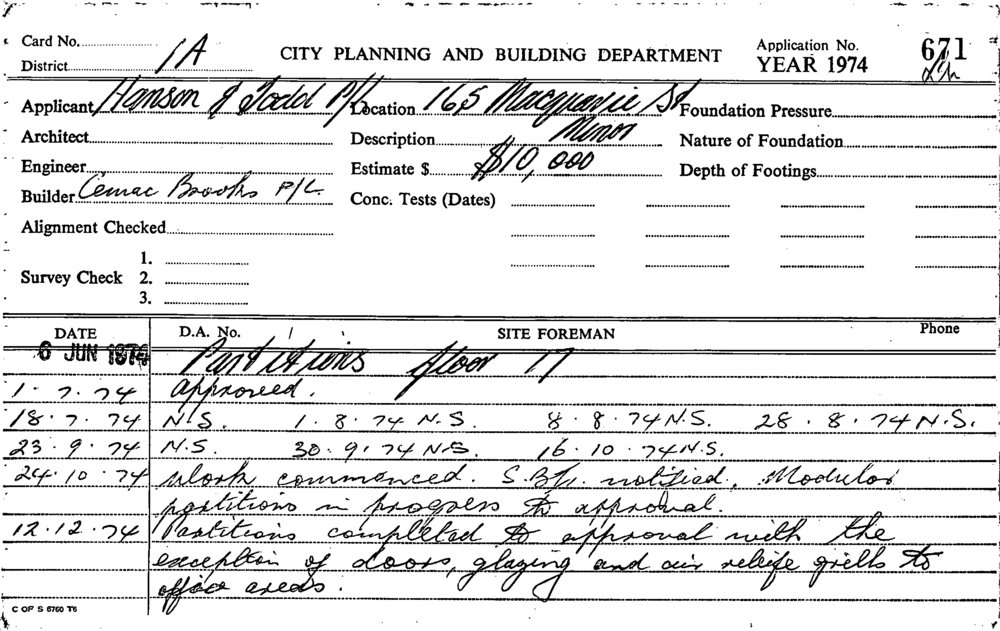 Card No.
District 1A
CITY PLANNING AND BUILDING DEPARTMENT
Application No. 671
YEAR 1974
Applicant Hanson & Todd P/L Location 165 Macquarie St Foundation Pressure
Architect Description Minor Nature of Foundation
Engineer Estimate $ $10,000 Depth of Footings
Builder Cemac Brooks P/L. Conc. Tests (Dates)
Alignment Checked
Survey Check 1.
2.
3.
DATE D.A. No. / SITE FOREMAN Phone
6 JUN 1974 Partitions floor 17
1.7.74 Approved.
18.7.74 N.S. 1.8.74 N.S. 8.8.74 N.S. 28.8.74 N.S.
23.9.74 N.S. 30.9.74 N.S. 16.10.74 N.S.
24.10.74 Work commenced. notified. Modular
partitions in progress to approval.
12.12.74 Partitions completed to approval with the
exception of doors, glazing and air releife grills to
office areas.
C OF S 6760 T6